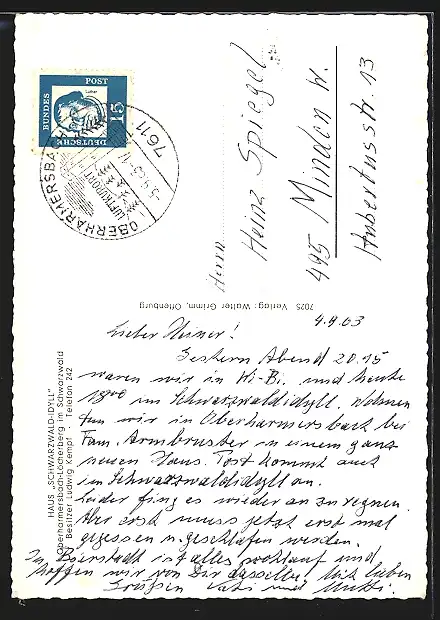 DEUTSCHE
BUNDES
POST
15
Luther
7611
OBERHARMERSBACH
LUFTKURORT
Herrn
Heinz Spiegel
495 Minden W.
Hubertusstr. 13
7025 Verlag: Walter Grimm, Offenburg
HAUS „SCHWARZWALD-IDYLL"
Oberharmersbach-Löcherberg im Schwarzwald
Besitzer Ludwig Kempf · Telefon 242
4.9.63
Lieber Heiner!
Gestern Abend 20.15
waren wir in Hi-Bi. und heute
im Schwarzwaldidyll. Wohnen
tun wir in Oberharmersbach bei
Fam. Armbruster in einem ganz
neuen Haus. Post kommt auch
im Schwarzwaldidyll an.
Leider fing es wieder an zu regnen.
Aber erst muss jetzt erst mal
gegessen u. geschlafen werden.
In Bierstadt ist alles wohlauf und
hoffen wir von Dir dasselbe. Mit lieben
Grüßen Vati und Mutti.